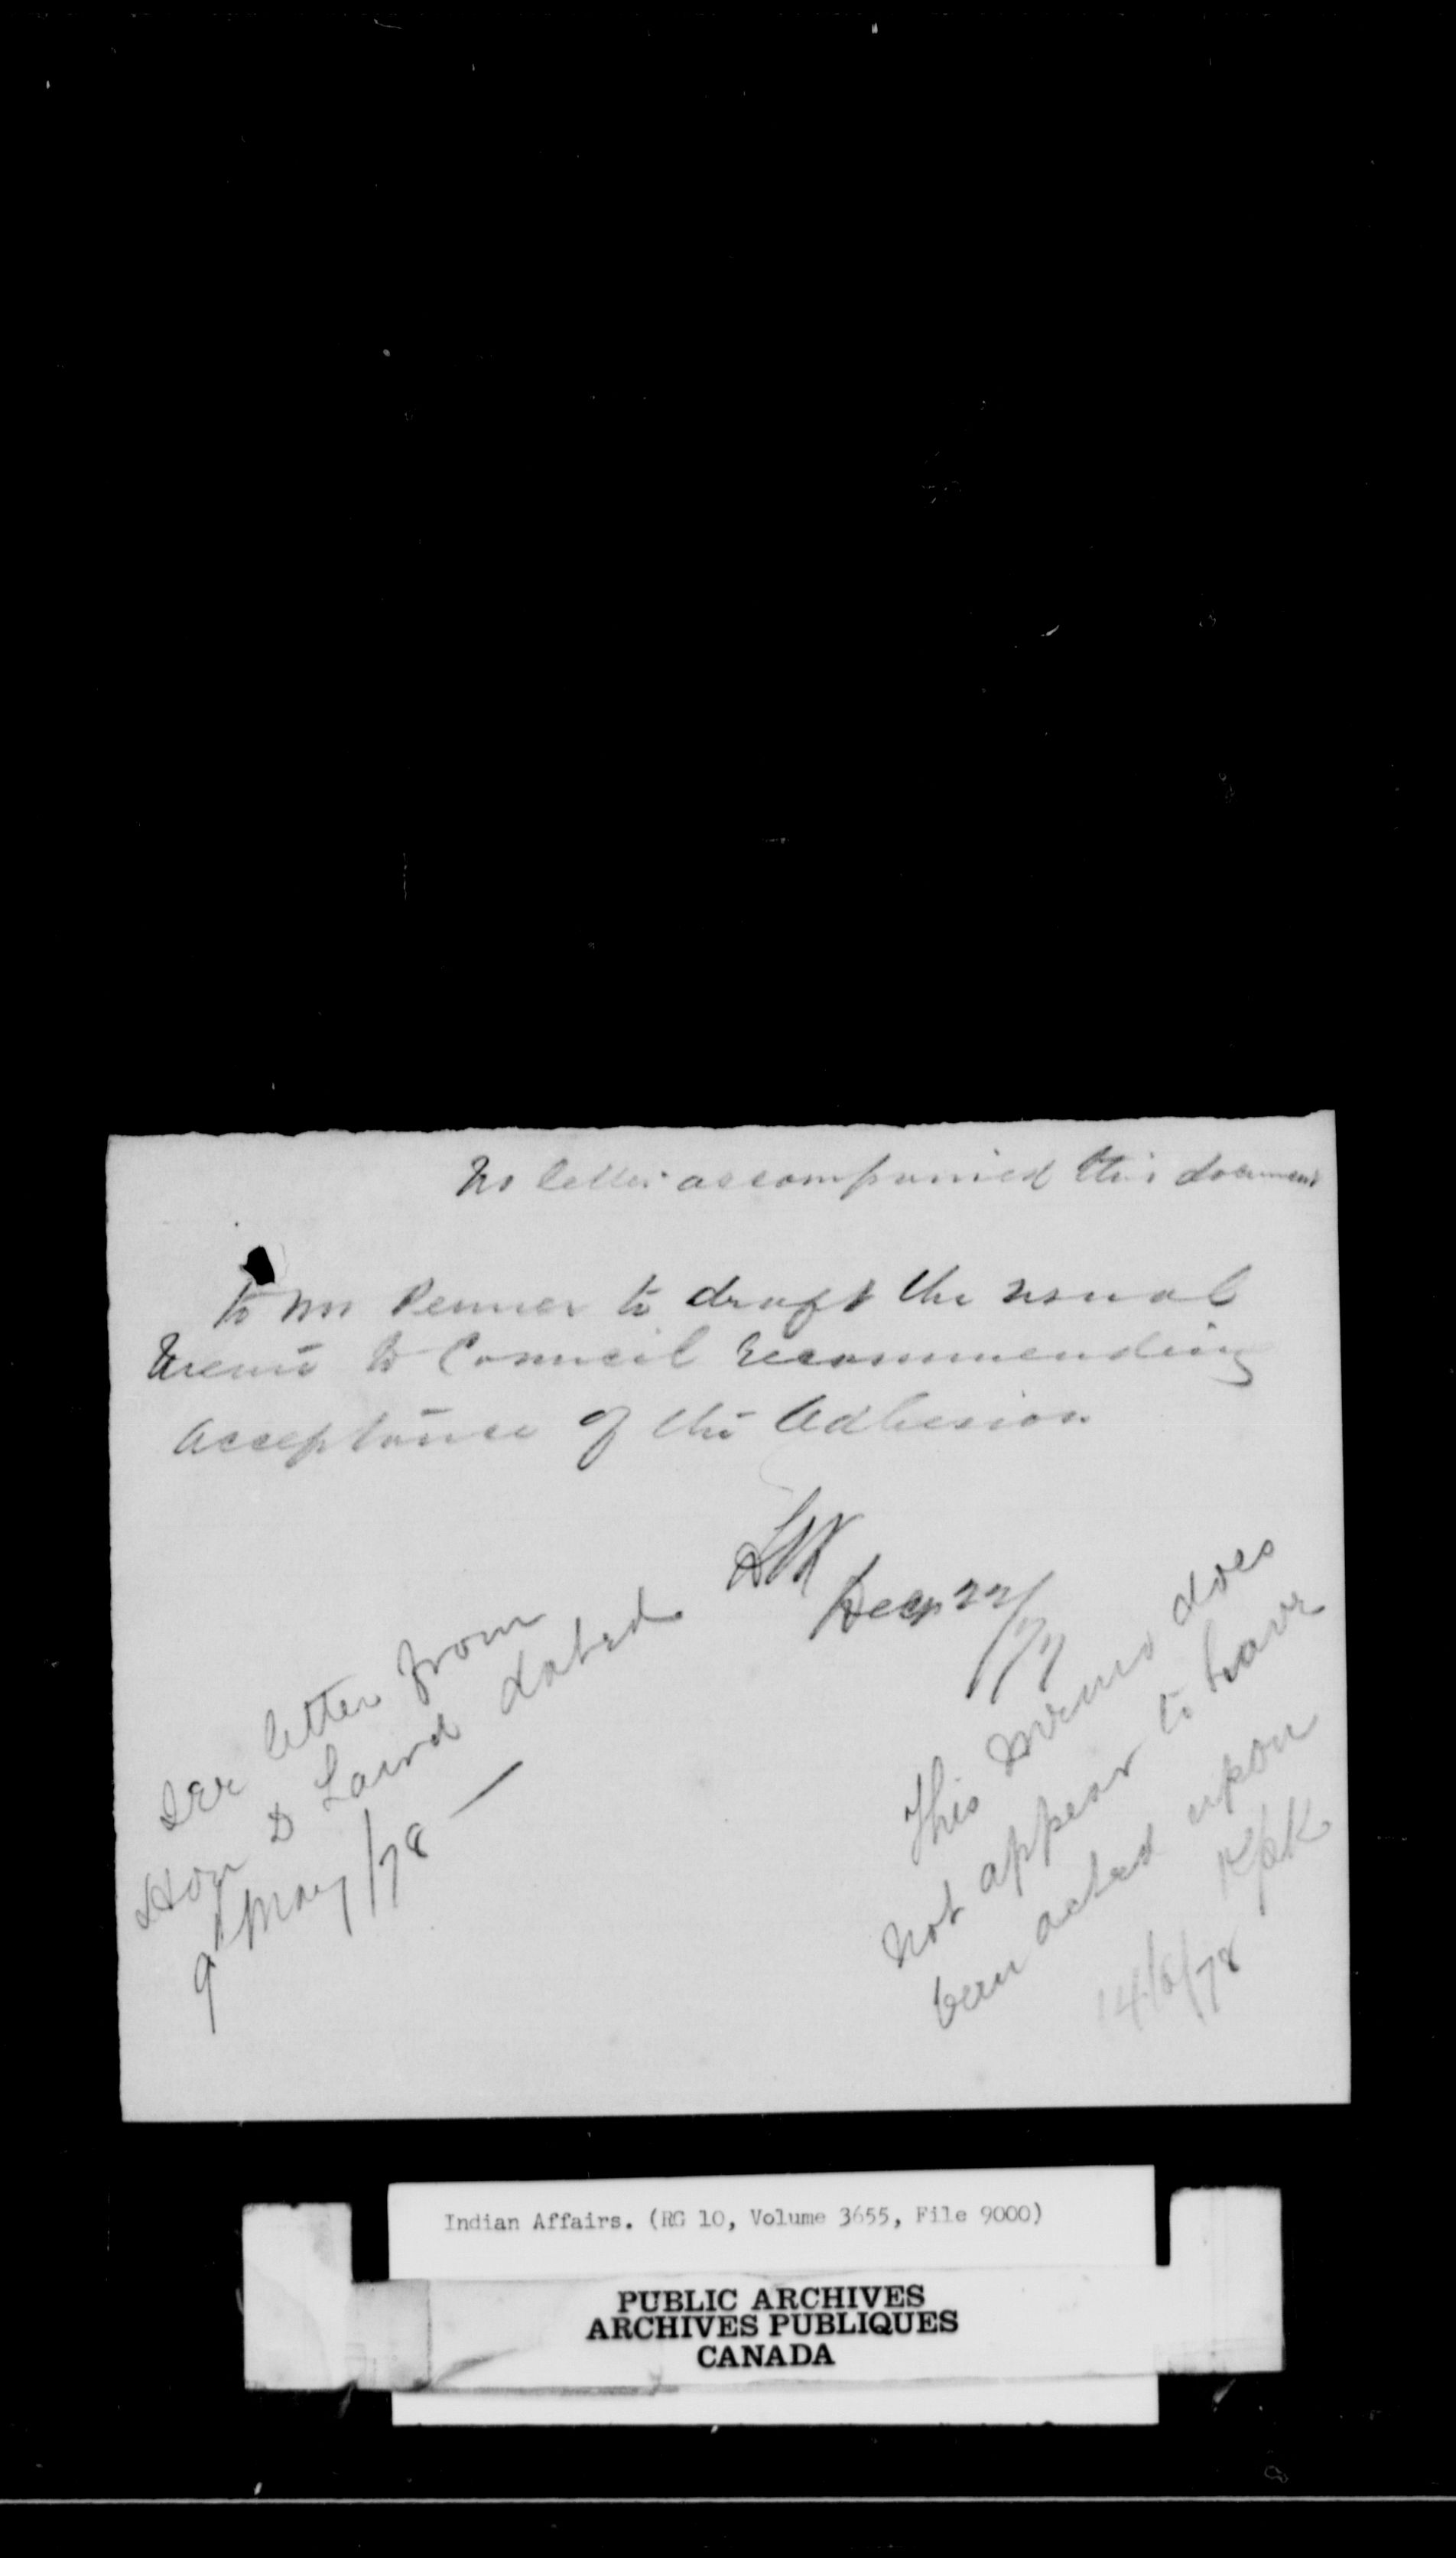 No letter accompanied this document
To Mr Penner to draft the usual
Memo to Council recommending
acceptance of the Adhesion
Decr 22/77
See letter from
Hon D Laird dated
9 May/78 —
This memo does
not appear to have
been acted upon
14/6/78
Indian Affairs. (RG 10, Volume 3655, File 9000)
PUBLIC ARCHIVES
ARCHIVES PUBLIQUES
CANADA